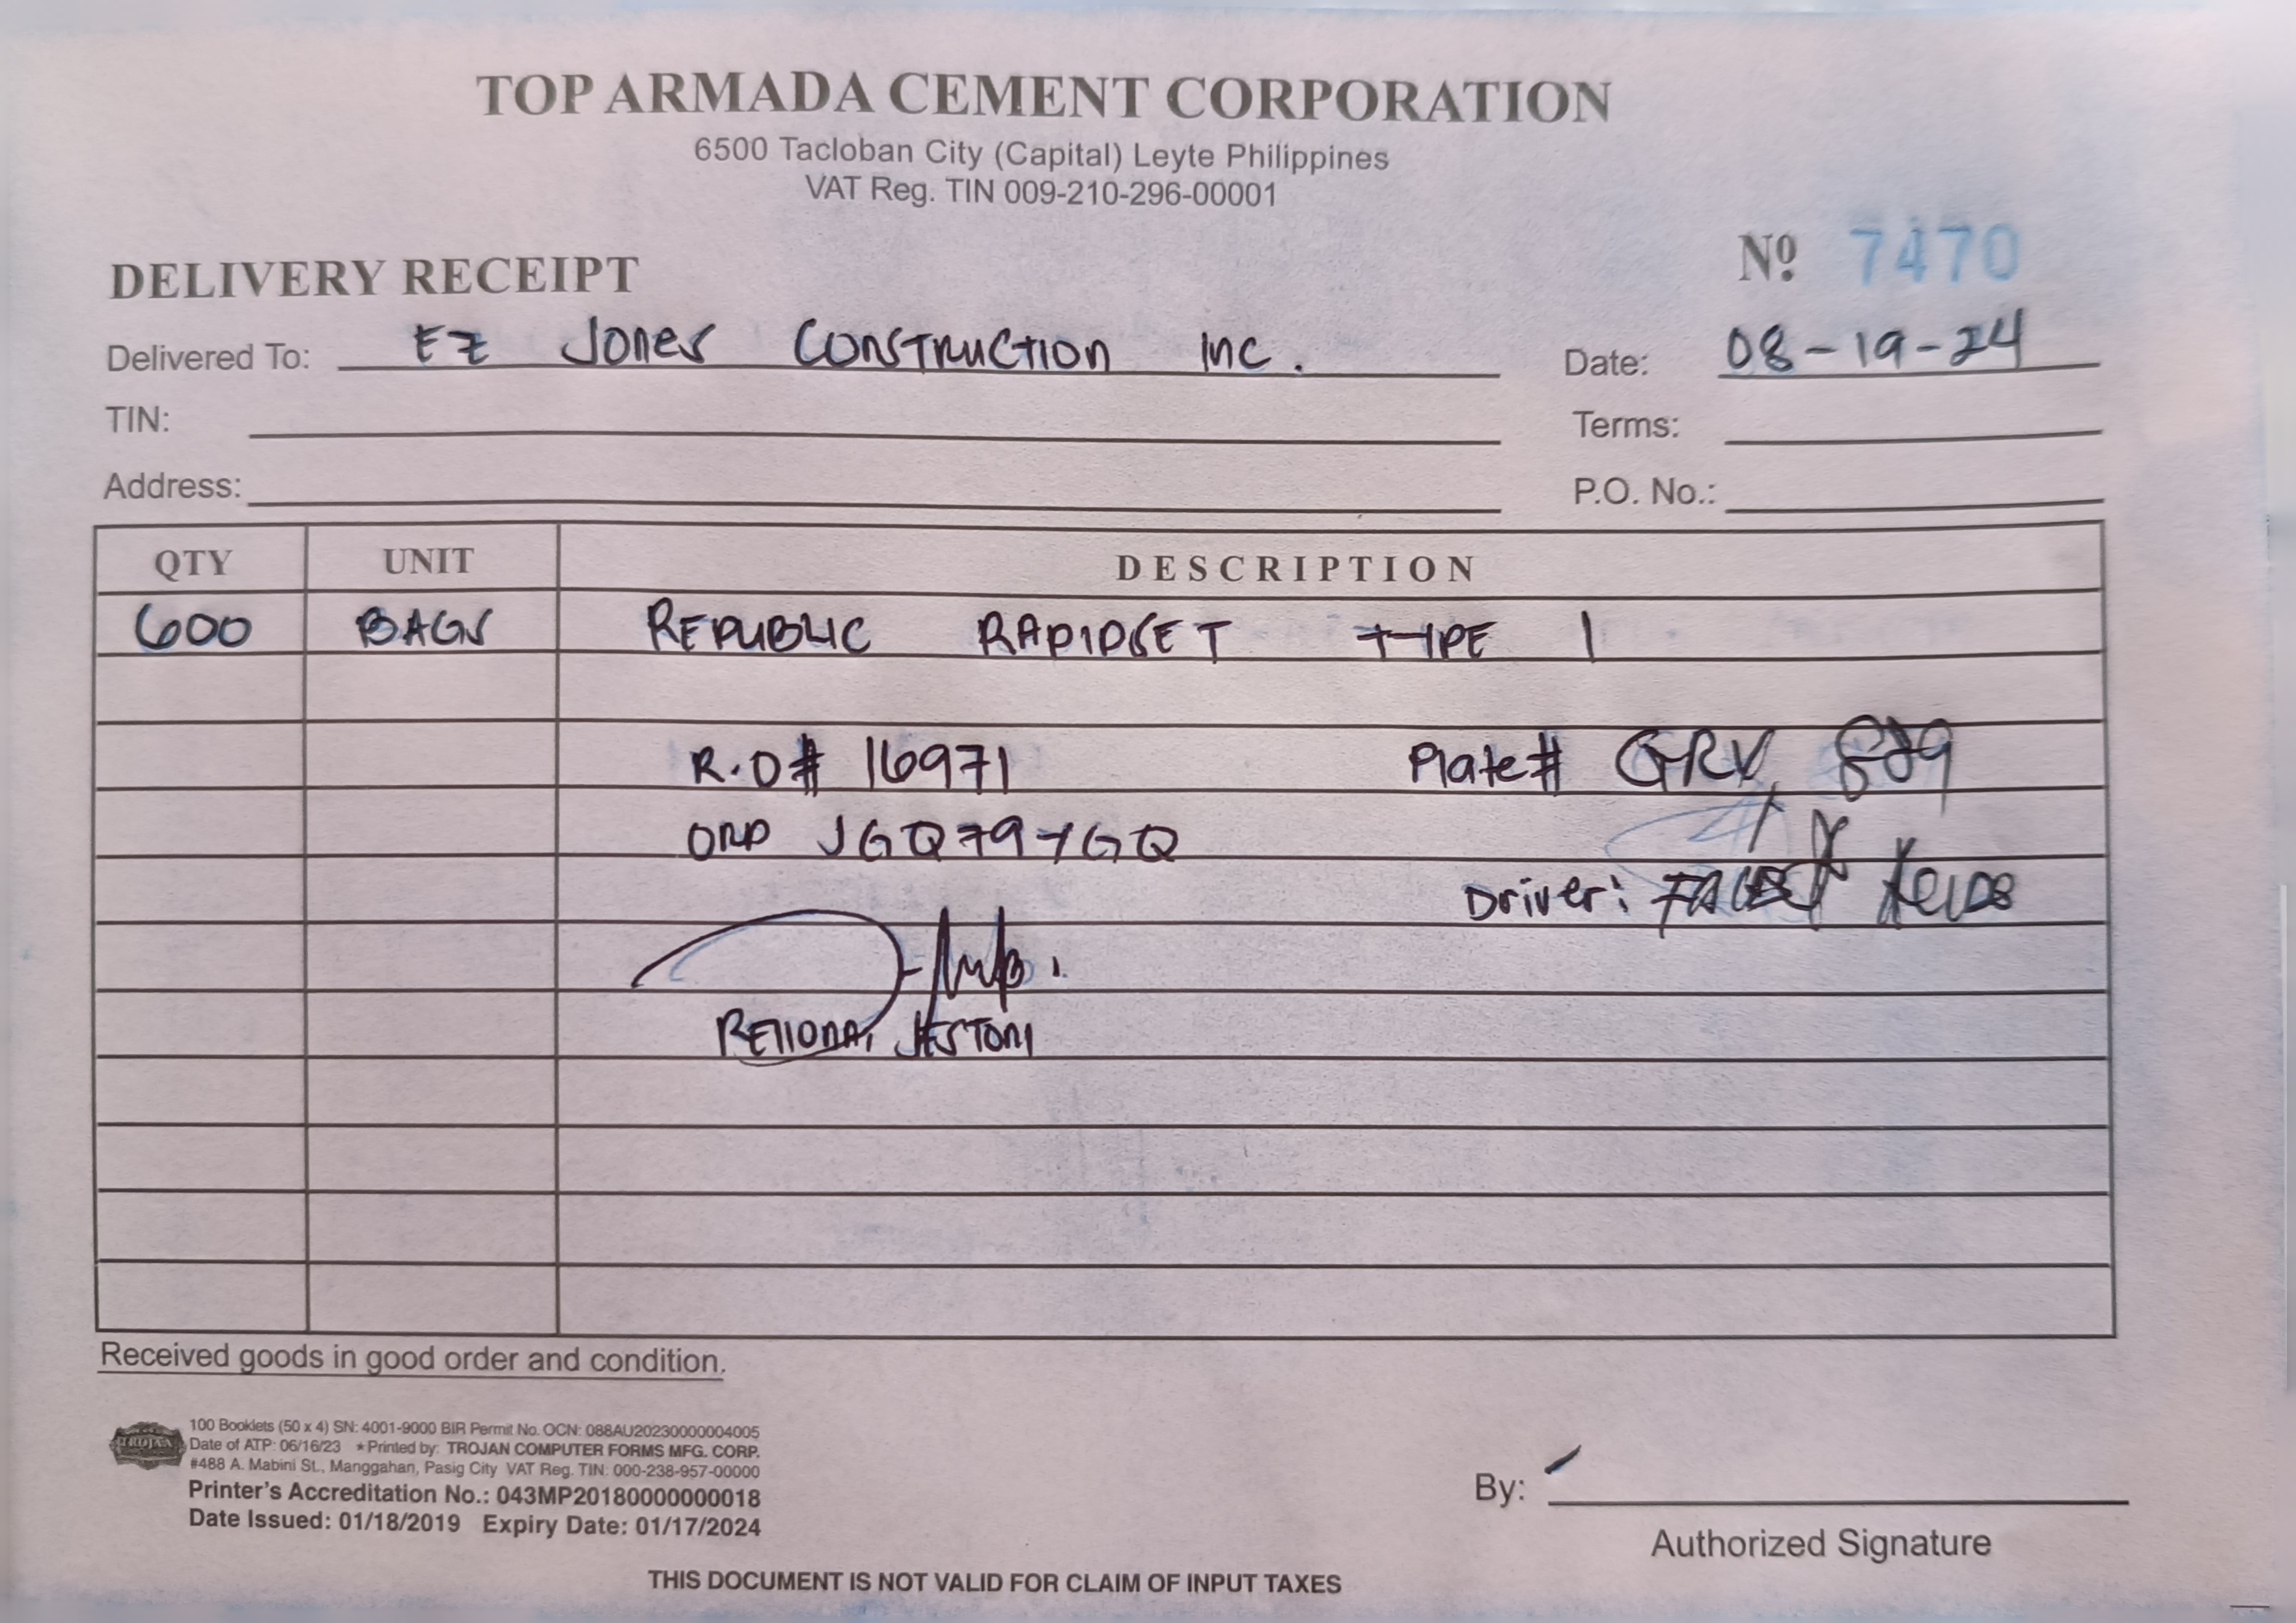 TOP ARMADA CEMENT CORPORATION
6500 Tacloban City (Capital) Leyte Philippines
VAT Reg. TIN 009-210-296-00001
DELIVERY RECEIPT
Nº 7470
Delivered To: EZ Jones CONSTRUCTION INC.
Date: 08-19-24
TIN:
Terms:
Address:
P.O. No.:
QTY UNIT DESCRIPTION
600 BAGS REPUBLIC RAPIDSET TYPE 1
R.O# 16971 Plate# GRV
ORD JGQ79YGQ
Driver:
JESTONI
Received goods in good order and condition.
TROJAN
100 Booklets (50 x 4) SN: 4001-9000 BIR Permit No. OCN: 088AU20230000004005
Date of ATP: 06/16/23 ★Printed by: TROJAN COMPUTER FORMS MFG. CORP.
#488 A. Mabini St., Manggahan, Pasig City VAT Reg. TIN: 000-238-957-00000
Printer's Accreditation No.: 043MP20180000000018
Date Issued: 01/18/2019 Expiry Date: 01/17/2024
By:
Authorized Signature
THIS DOCUMENT IS NOT VALID FOR CLAIM OF INPUT TAXES